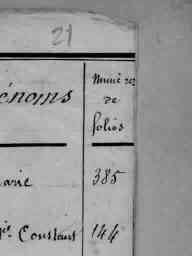 21
énoms
Numéros
de
folios
arie 385
Constant 144